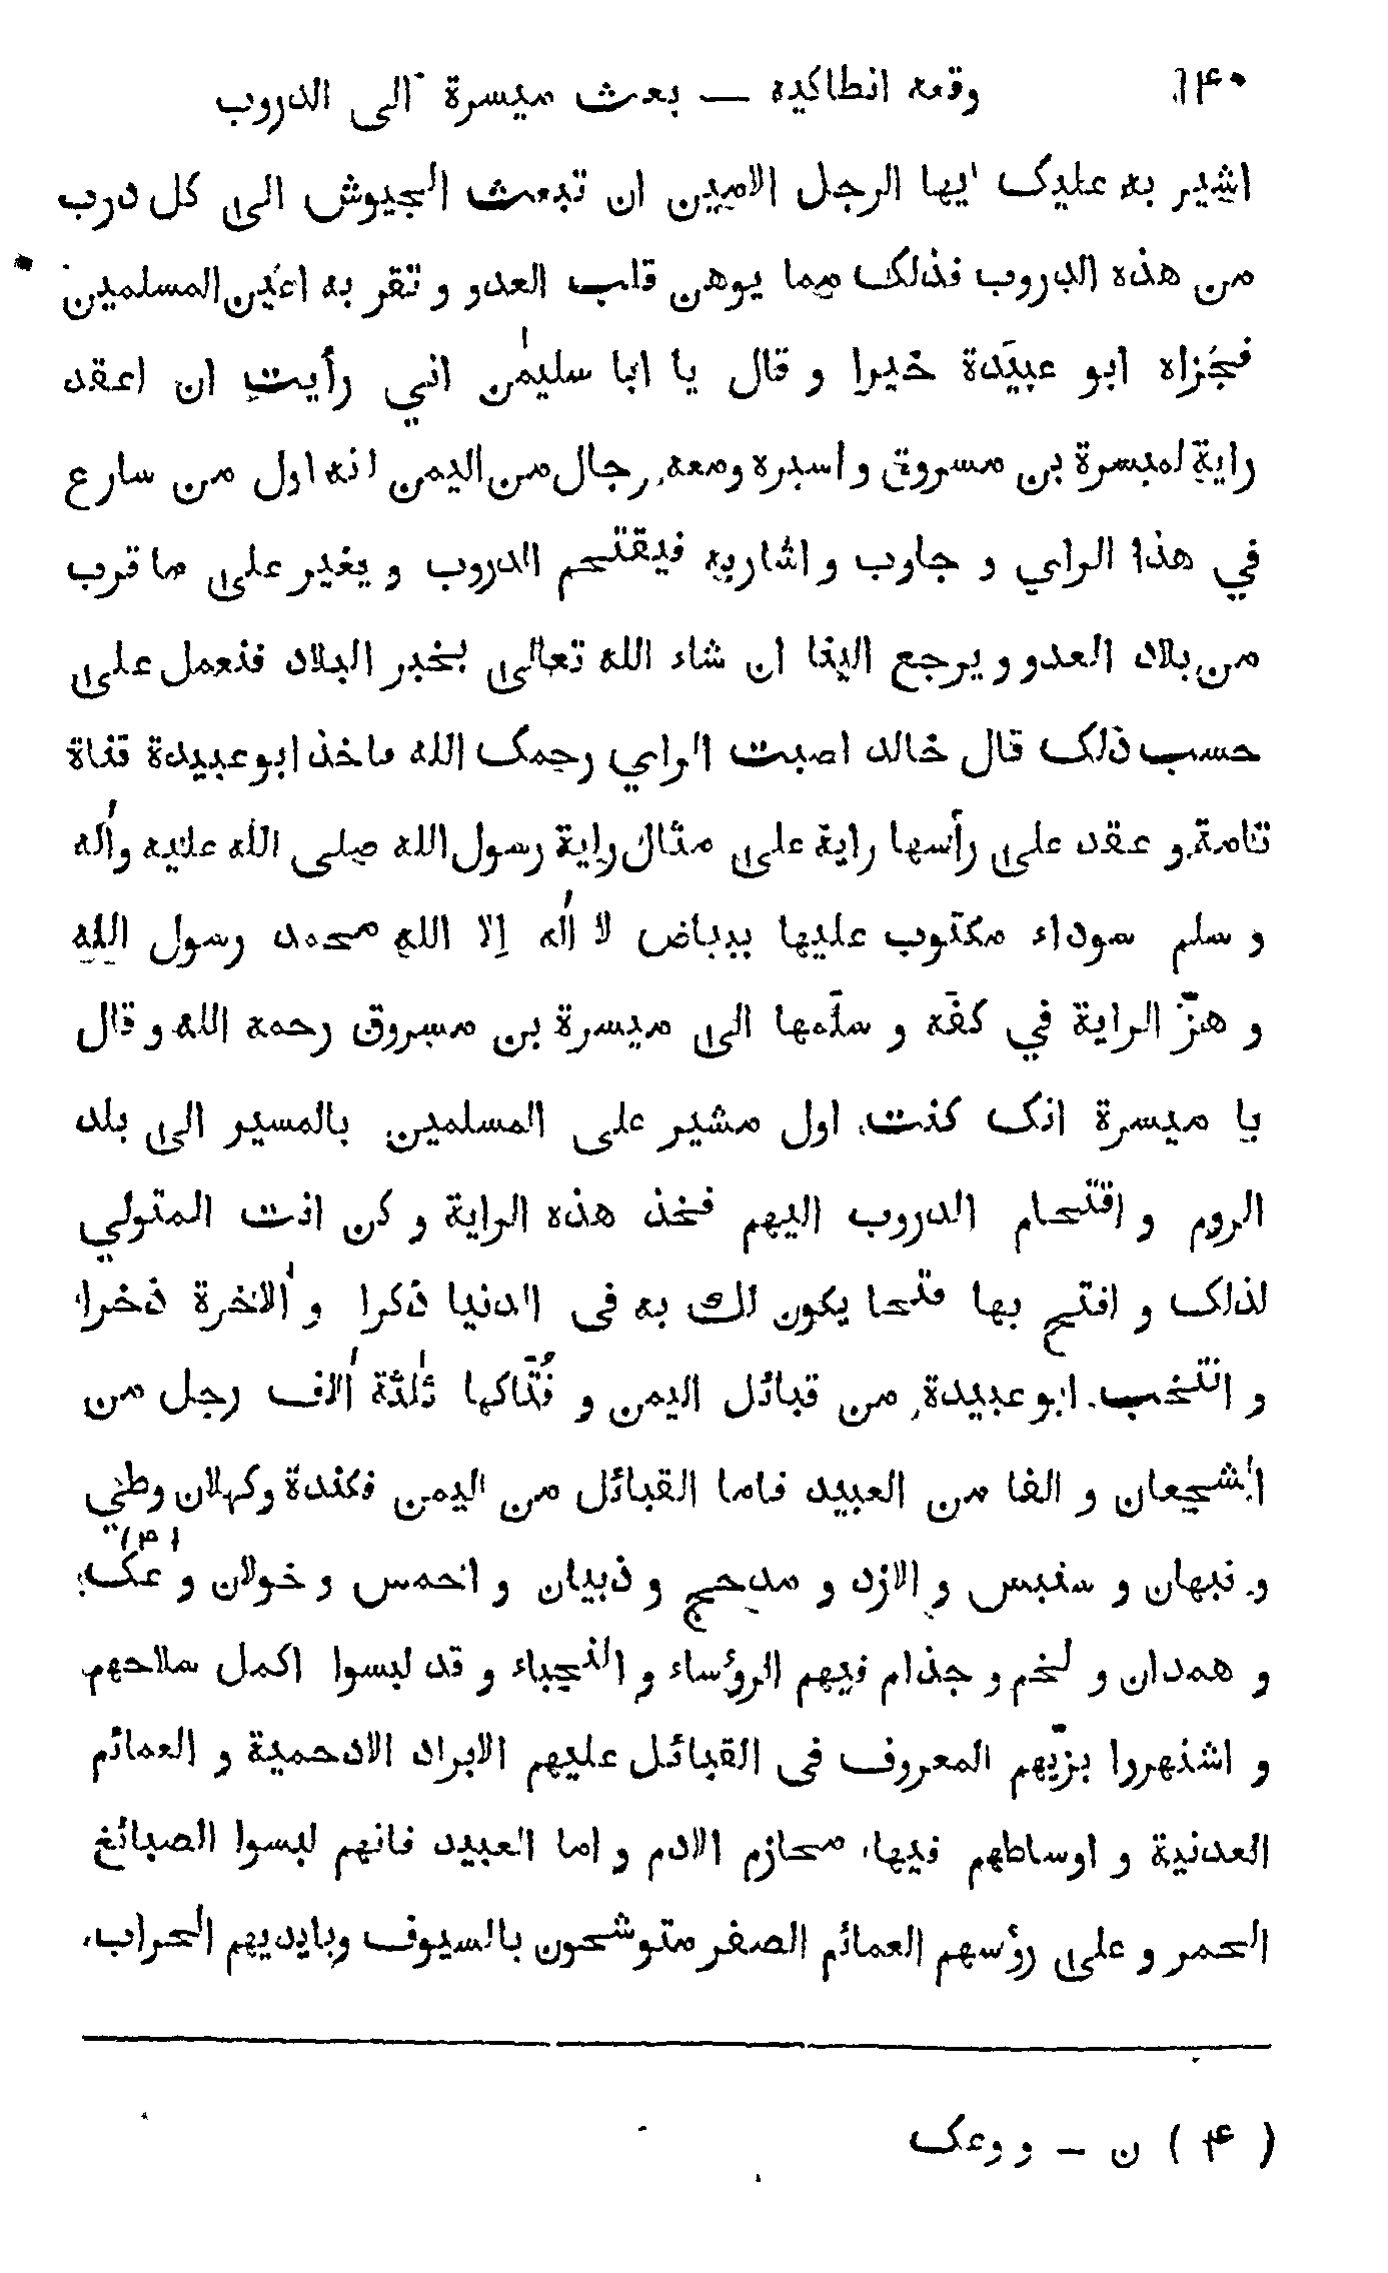 ١٤٠ وقعه انطاكيه — بعث ميسرة الى الدروب
اشير به عليك ايها الرجل الامين ان تبعث الجيوش الى كل درب
من هذه الدروب فذلك مما يوهن قلب العدو و تقر به اعين المسلمين
فجزاه ابو عبيدة خيرا و قال يا ابا سليمٰن اني رأيت ان اعقد
راية لميسرة بن مسروق و اسيره ومعه رجال من اليمن انه اول من سارع
في هذا الراي و جاوب و اشار به فيقتحم الدروب و يغير على ما قرب
من بلاد العدو و يرجع الينا ان شاء الله تعالى بخبر البلاد فنعمل على
حسب ذلك قال خالد اصبت الراي رحمك الله فاخذ ابو عبيدة قناة
تامة و عقد على رأسها راية على مثال راية رسول الله صلى الله عليه واٰله
و سلم سوداء مكتوب عليها ببياض لا اٰله إلا الله محمد رسول الله
و هزّ الراية في كفّه و سلّمها الى ميسرة بن مسروق رحمه الله و قال
يا ميسرة انك كنت اول مشير على المسلمين بالمسير الى بلد
الروم و اقتحام الدروب اليهم فخذ هذه الراية و كن انت المتولي
لذلك و افتح بها فتحا يكون لك به فى الدنيا ذكرا و اٰلاخرة ذخرا
و انتخب ابو عبيدة من قبائل اليمن و فُتّاكها ثلٰثة اٰلاف رجل من
الشجعان و الفا من العبيد فاما القبائل من اليمن فكندة وكهلان وطي
و نبهان و سنبس و الازد و مدحج و ذبيان و احمس و خولان و عك (٤)
و همدان و لخم و جذام فيهم الرؤساء و النجباء و قد لبسوا اكمل سلاحهم
و اشتهروا بزيّهم المعروف فى القبائل عليهم الابراد الادحمية و العمائم
العدنية و اوساطهم فيها محازم الادم و اما العبيد فانهم لبسوا الصبائغ
الحمر و على رؤسهم العمائم الصفر متوشحون بالسيوف وبايديهم الحراب
( ٤ ) ن — و وعك